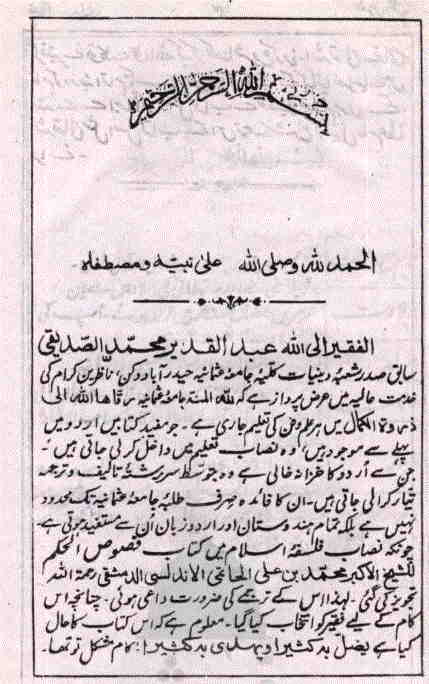 بسم اللہ الرحمٰن الرحیم
الحمد للہ وصلی اللہ علیٰ نبیہ ومصطفاہ۔
الفقیر الی اللہ عبد القدیر محمد الصدیقی
سابق صدر شعبۂ دینیات کلیۂ جامعۂ عثمانیہ حیدرآباد دکن، ناظرین کرام کی
خدمت عالیہ میں عرض پرداز ہے کہ للہ المنۃ جامعۂ عثمانیہ رقاھا اللہ الی
ذروۃ الکمال میں ہر علم و فن کی تعلیم جاری ہے۔ جو مفید کتابیں اردو میں
پہلے سے موجود ہیں، وہ نصاب تعلیم میں داخل کر لی جاتی ہیں،
جن سے اُردو کا خزانہ خالی ہے وہ بتوسط سررشتۂ تالیف و ترجمہ
تیار کرالی جاتی ہیں۔ ان کا فائدہ صرف طلبۂ جامعۂ عثمانیہ تک محدود
نہیں ہے بلکہ تمام ہندوستان اور اردو زبان اُن سے مستفید ہوتی ہے۔
چونکہ نصاب فلسفۂ اسلام میں کتاب فصوص الحکم
للشیخ الاکبر محمد بن علی الحاتمی الاندلسی الدمشقی رحمۃ اللہ
تجویز کی گئی۔ لہذا اس کے ترجمے کی ضرورت داعی ہوئی۔ چنانچہ اس
کام کے لیے فقیر کو انتخاب کیا گیا۔ معلوم ہے کہ اس کتاب کا حال
کیا ہے یضل بہ کثیرا و یھدی بہ کثیرا؛ کام مشکل تو تھا۔